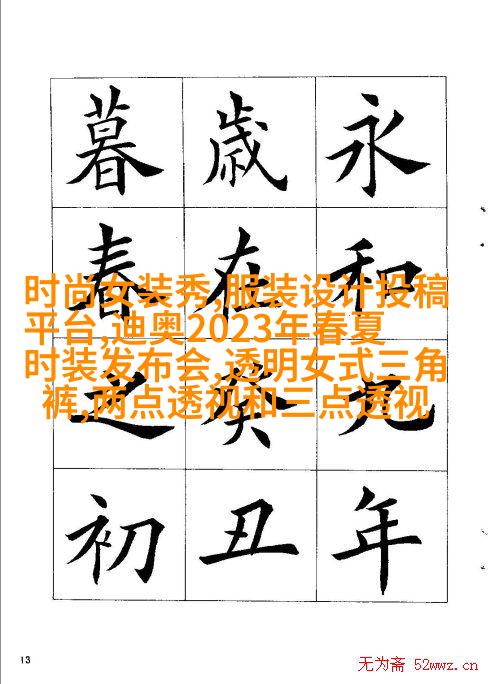 永和九年
歲在癸丑
暮春之初
时尚女装秀,服装设计投稿
平台,迪奥2023年春夏
时装发布会,透明女式三角
裤,两点透视和三点透视
13
无为斋 52wwz.cn